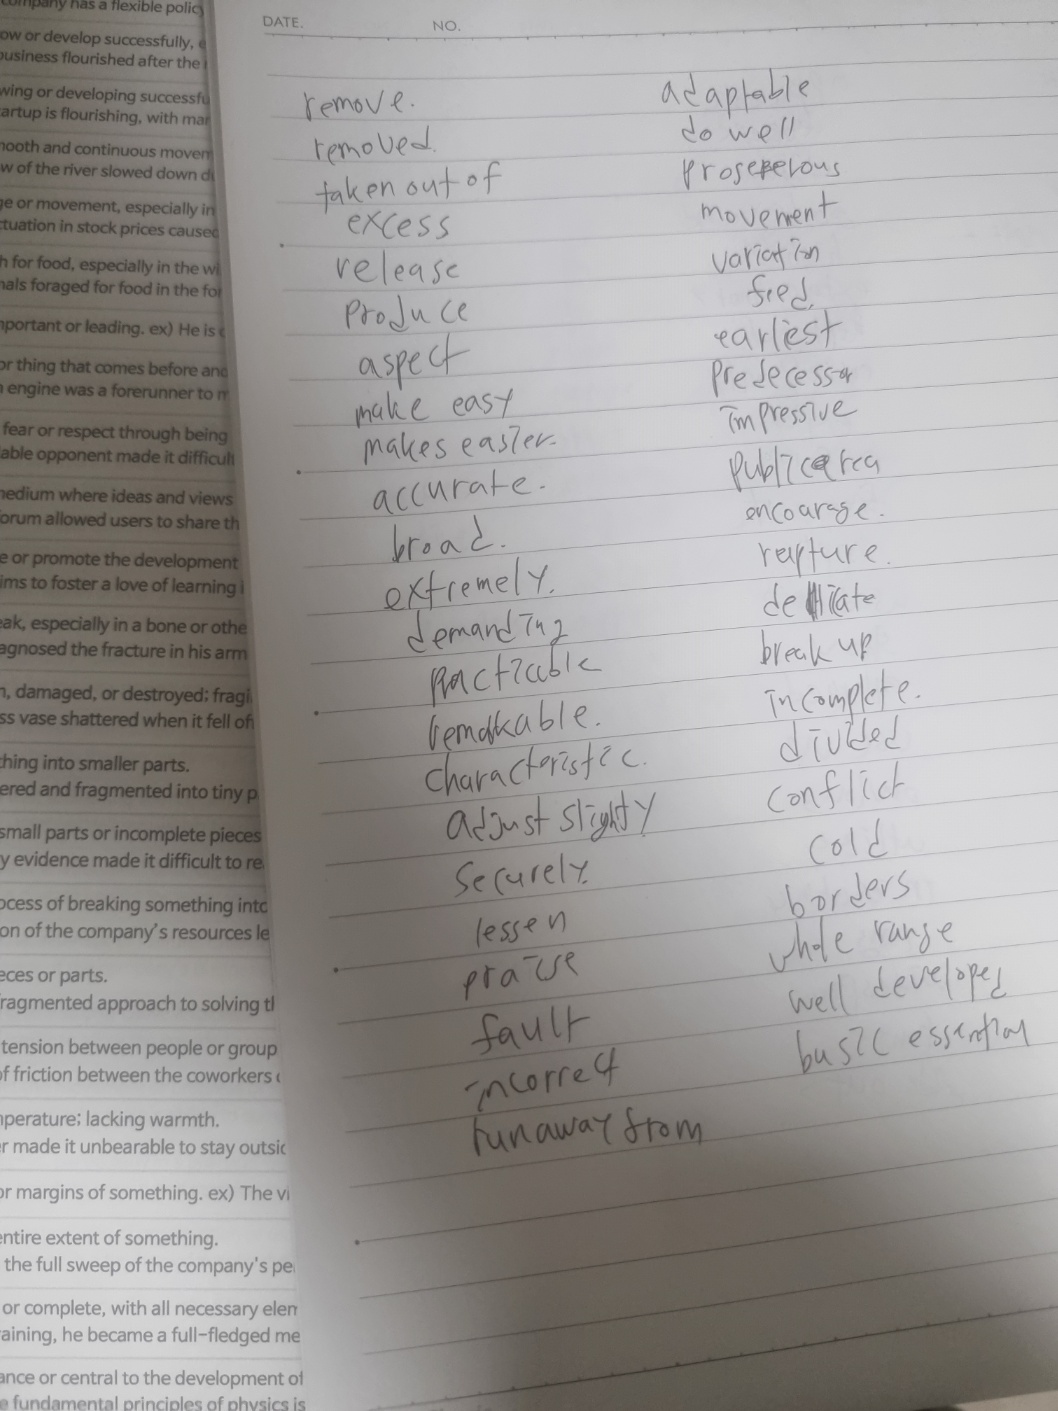 company has a flexible policy
ow or develop successfully,
business flourished after the
wing or developing successfu
artup is flourishing, with mar
mooth and continuous movem
w of the river slowed down d
ge or movement, especially in
ctuation in stock prices caused
h for food, especially in the wi
nals foraged for food in the for
mportant or leading. ex) He is
or thing that comes before and
engine was a forerunner to m
fear or respect through being
able opponent made it difficult
medium where ideas and views
orum allowed users to share th
e or promote the development
ims to foster a love of learning
eak, especially in a bone or othe
agnosed the fracture in his arm
n, damaged, or destroyed; fragi
ss vase shattered when it fell off
thing into smaller parts.
ered and fragmented into tiny p
small parts or incomplete pieces
y evidence made it difficult to re
ocess of breaking something into
on of the company's resources le
eces or parts.
fragmented approach to solving tl
tension between people or group
of friction between the coworkers
mperature; lacking warmth.
er made it unbearable to stay outsic
or margins of something. ex) The vi
entire extent of something.
the full sweep of the company's pe
or complete, with all necessary elem
raining, he became a full-fledged me
ance or central to the development of
e fundamental principles of physics is
DATE. NO.
remove.
removed.
taken out of
excess
release
produce
aspect
make easy
makes easier.
accurate.
broad.
extremely.
demanding
practicable
remarkable.
characteristic.
adjust slighty
securely.
lessen
praise
fault
incorrect
run away from
adaptable
do well
prosperous
movement
variation
feed.
earliest
predecessor
impressive
public area
encourage.
rapture.
break up
incomplete.
divided
conflict
cold
borders
whole range
well developed
basic essential